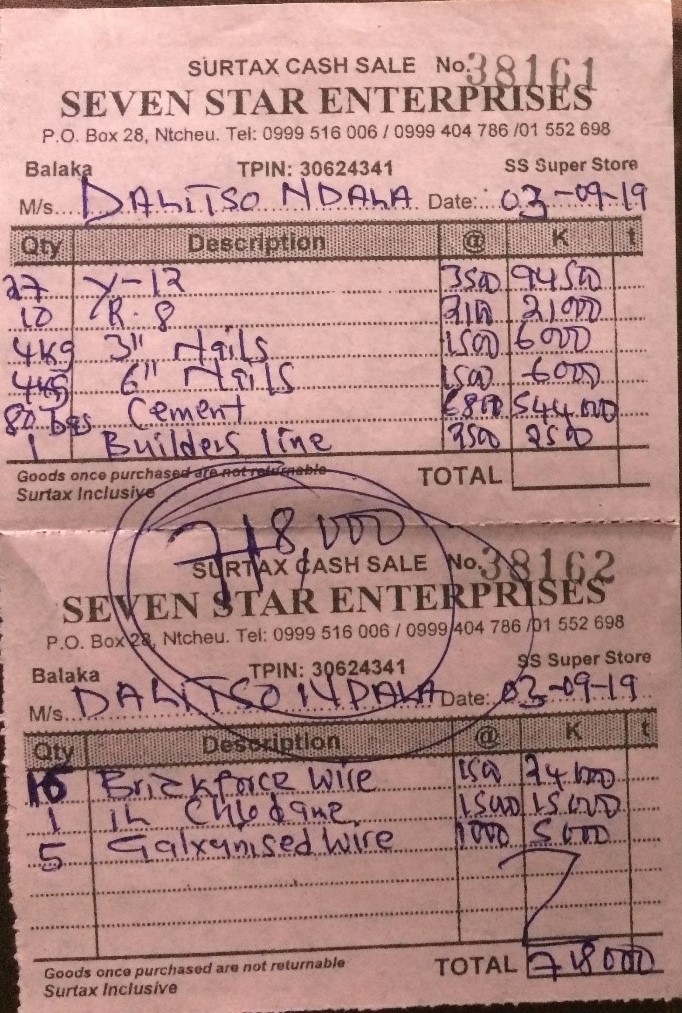 SURTAX CASH SALE No. 38161
SEVEN STAR ENTERPRISES
P.O. Box 28, Ntcheu. Tel: 0999 516 006 / 0999 404 786 /01 552 698
Balaka TPIN: 30624341 SS Super Store
M/s. DALITSO NDALA Date: 03-09-19
Qty Description @ K t
27 Y-12 3500 94500
10 R-8 2100 21000
4kg 3" Nails 1500 6000
4kg 6" Nails 1500 6000
80 bgs Cement 6800 544,000
1 Builders line 2500 2500
Goods once purchased are not returnable
Surtax Inclusive
TOTAL
718,000
SURTAX CASH SALE No. 38162
SEVEN STAR ENTERPRISES
P.O. Box 28, Ntcheu. Tel: 0999 516 006 / 0999 404 786 /01 552 698
Balaka TPIN: 30624341 SS Super Store
M/s. DALITSO NDALA Date: 03-09-19
Qty Description @ K t
16 Brickforce wire 1500 24000
1 1L Chlodane 15000 15000
5 Galvanised wire 1000 5000
Goods once purchased are not returnable
Surtax Inclusive
TOTAL 718000